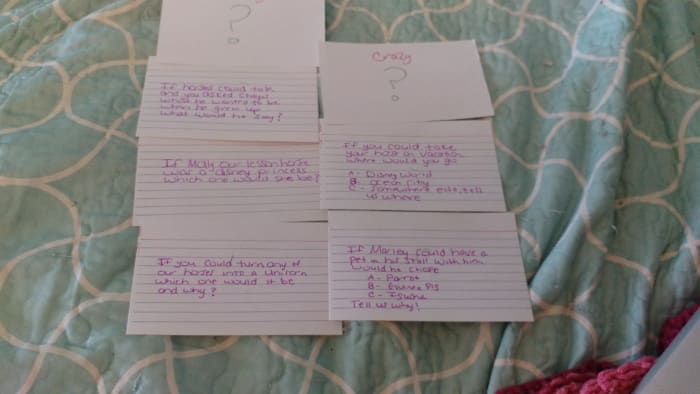 ?
If horses could talk
and you asked
what he wanted to be
when he grew up
what would he say?
If Molly our lesson horse
was a disney princess
which one would she be?
If you could turn any of
our horses into a unicorn
which one would it be
and why?
Crazy
?
If you could take
your horse on vacation
where would you go
A- Disney World
B- ocean city
C- somewhere else, tell
us where
If Marley could have a
pet in his stall with him
would he chose
A- Parrot
B- Guinea Pig
C- Iguana
Tell us why!